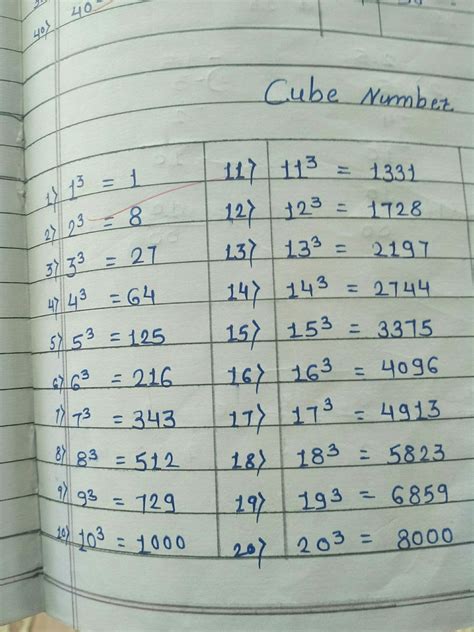 40) 40
Cube Number
1) 1³ = 1
2) 2³ = 8
3) 3³ = 27
4) 4³ = 64
5) 5³ = 125
6) 6³ = 216
7) 7³ = 343
8) 8³ = 512
9) 9³ = 729
10) 10³ = 1000
11) 11³ = 1331
12) 12³ = 1728
13) 13³ = 2197
14) 14³ = 2744
15) 15³ = 3375
16) 16³ = 4096
17) 17³ = 4913
18) 18³ = 5823
19) 19³ = 6859
20) 20³ = 8000